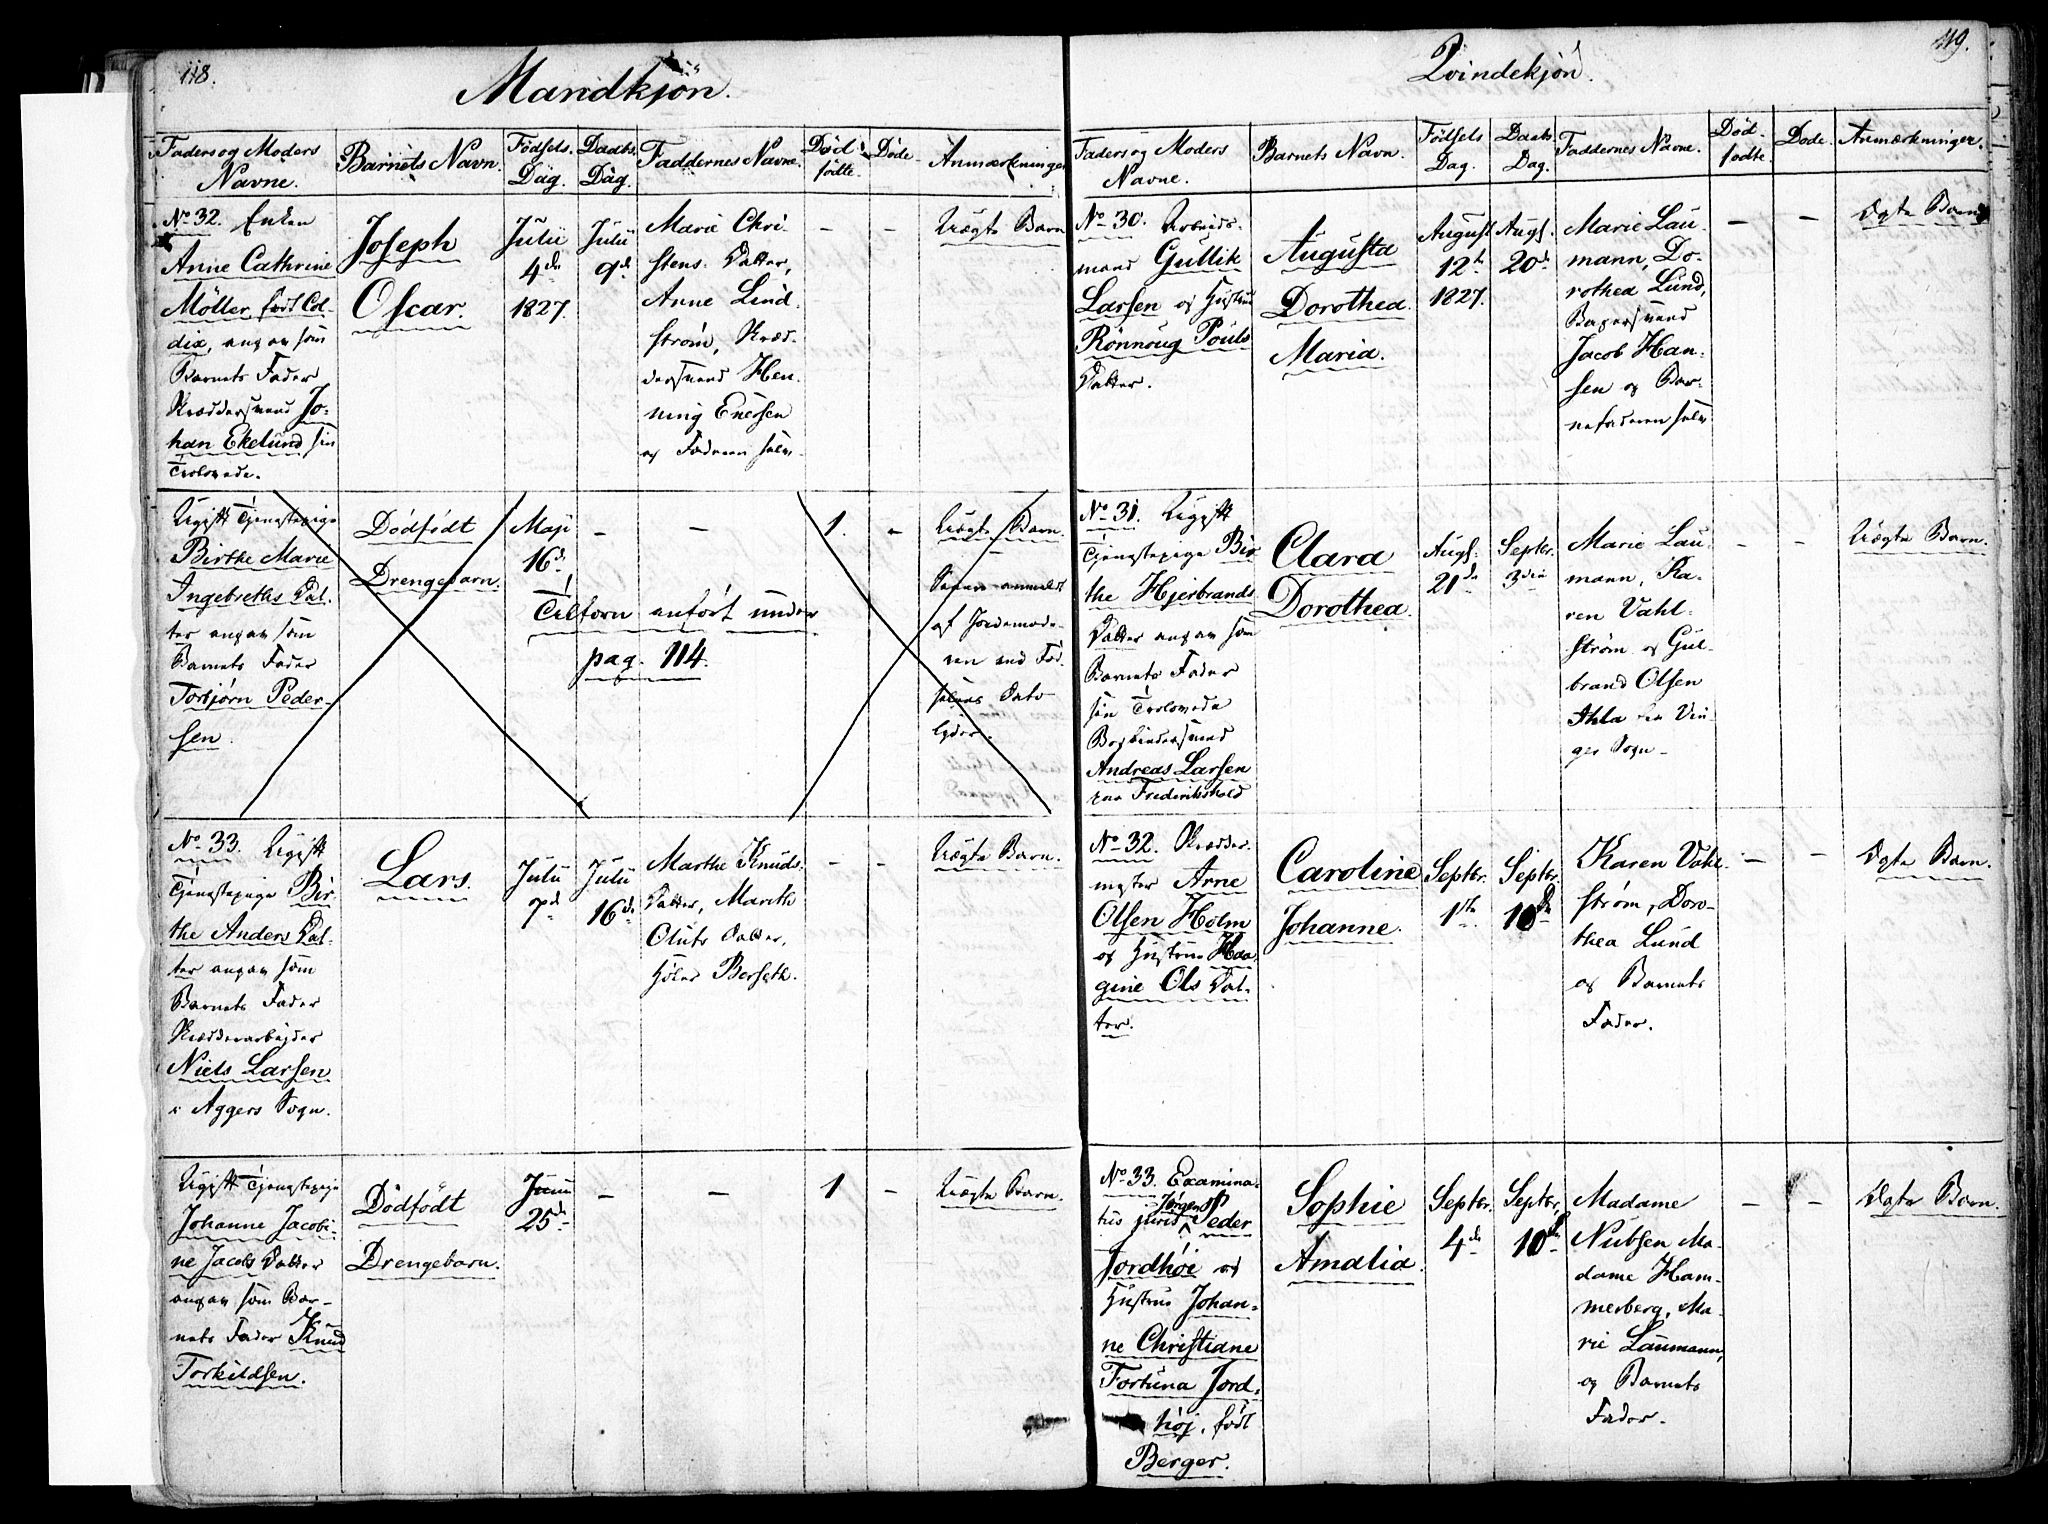 118.
Mandkjön.
Faders og Moders Navne.
Barnets Navn.
Födsels Dag.
Daabs Dag.
Faddernes Navne.
Död födte.
Döde
Anmærkninger
No 32. Enken
Anne Cathrine
Möller, født Col-
dix, angav som
Barnets Fader
Skræddersvend Jo-
han Ekelund sin
Trolovede.
Joseph
Oscar.
Julii
4de
1827.
Julii
9de
Marie Chri-
stens Datter,
Anne Lind-
strøm, Skræd-
dersvend Hen-
ning Enersen
og Faderen selv.
-
-
Uægte Barn
Ugift Tjenestepige
Birthe Marie
Ingebreths Dat-
ter angav som
Barnets Fader
Torbjørn Peder-
sen.
Dödfödt
Drengebarn.
Maji
16de
-
-
1.
-
Tilforn anført under
pag. 114.
Uægte Barn.
Senere anmeldt
af Jordemode-
ren end Fød-
selens Dato
lyder.
No 33. Ugift
Tjenestepige Bir-
the Anders Dat-
ter angav som
Barnets Fader
Skrædderarbejder
Niels Larsen
i Aggers Sogn.
Lars.
Julii
7de
Julii
16de
Marthe Knuds-
Datter, Marithe
Oluts Datter,
Berseth.
-
-
Uægte Barn.
Ugift Tjenestepige
Johanne Jacobi-
ne Jacobs Datter
angav som Bar-
nets Fader Knud
Torkildsen.
Dödfödt
Drengebarn.
Junii
25de
-
-
1
-
Uægte Barn.
119.
Qvindekjön.
Faders og Moders Navne.
Barnets Navn.
Födsels Dag.
Daabs Dag.
Faddernes Navne.
Død-fødte.
Dode.
Anmærkninger.
No 30. Arbeids-
mand Gullik
Larsen og Hustrue
Rönnoug Pouls
Datter.
Augusta
Dorothea
Maria.
August
12te
1827.
Augs.
20de
Marie Lau-
mann, Do-
rothea Lund,
Bagersvend
Jacob Han-
sen og Bar-
nefaderen selv
-
-
Ægte Barn
No 31. Ugift
Tjenestepige Bir-
the Hjerbrands
Datter angav som
Barnets Fader
sin Trolovede
Bogbindersvend
Andreas Larsen
paa Frederikshald
Clara
Dorothea.
Augs.
21de
Septbr.
3die
Marie Lau-
mann, Ka-
ren Vahl-
strøm og Gul-
brand Olsen
Ihla fra Vin-
ger Sogn-
-
-
Uægte Barn.
No 32. Skrædder-
mester Arne
Olsen Holm
og Hustrue Haa-
gine Ols Dat-
ter.
Caroline
Johanne.
Septbr.
1ste
Septbr.
10de
Karen Vahl-
strøm, Doro-
thea Lund
og Barnets
Fader.
-
-
Ægte Barn.
No 33. Examina-
tus juris Jørgen Peder
Jordhöi og
Hustrue Johan-
ne Christiane
Fortuna Jord-
höj, født
Berger.
Sophie
Amalia.
Septbr.
4de
Septbr.
10de
Madame
Nubsen Ma-
dame Ham-
merberg, Ma-
rie Laumann,
og Barnets
Fader.
-
-
Ægte Barn.